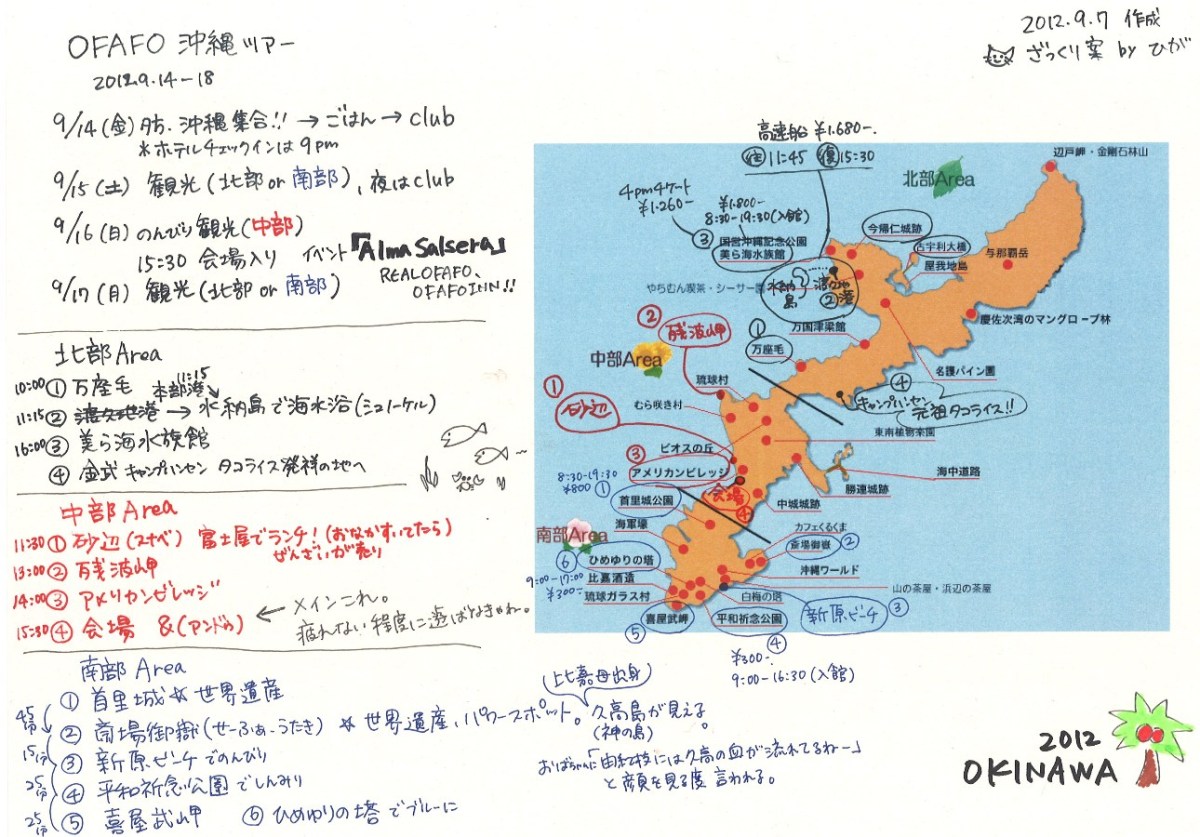 OFAFO 沖縄ツアー
2012.9.14-18
2012.9.7 作成
ざっくり案 by ひが
9/14(金) 夕方. 沖縄集合!! → ごはん → club
*ホテルチェックインは 9pm
9/15(土) 観光(北部 or 南部), 夜は club
9/16(日) のんびり観光(中部)
15:30 会場入り イベント「Alma Salsera」
REALOFAFO、
OFAFOINN!!
9/17(月) 観光(北部 or 南部)
北部 Area
10:00 ① 万座毛
本部港 11:15
11:15 ② 渡久地港 → 水納島で海水浴(シュノーケル)
16:00 ③ 美ら海水族館
④ 金武 キャンプハンセン タコライス発祥の地へ
中部 Area
11:30 ① 砂辺(スナベ) 富士屋でランチ!(おなかすいてたら)
ぜんざいが売り
13:00 ② 残波岬
14:00 ③ アメリカンビレッジ
15:30 ④ 会場 &(アンドゥ)
← メインこれ。
疲れない程度に遊ばなきゃね。
南部 Area
① 首里城 * 世界遺産
45分
② 斎場御嶽(せーふぁ・うたき) * 世界遺産、パワースポット。久高島が見える。
(比嘉母出身)
(神の島)
15分
③ 新原ビーチでのんびり
おばちゃんに「由紀枝には久高の血が流れてるねー」
と顔を見る度 言われる。
25分
④ 平和祈念公園でしんみり
25分
⑤ 喜屋武岬 ⑥ ひめゆりの塔でブルーに
高速船 ¥1.680-.
往 11:45 復 15:30
辺戸岬・金剛石林山
北部Area
4pm4ケート
¥1.260-
¥1.800-
8:30-19:30(入館)
③ 国営沖縄記念公園
美ら海水族館
今帰仁城跡
古宇利大橋
屋我地島
与那覇岳
やちむん喫茶・シーサー園
水納島
渡久地 ② 港
慶佐次湾のマングローブ林
② 残波岬
① 万座毛
万国津梁館
中部Area
名護パイン園
琉球村
④ キャンプハンセン
元祖タコライス!!
① 砂辺
むら咲き村
東南植物楽園
ビオスの丘
③ アメリカンビレッジ
海中道路
8:30-19:30
¥800 ① 首里城公園
会場 ④
勝連城跡
中城城跡
南部Area
海軍壕
カフェくるくま
斎場御嶽 ②
⑥ ひめゆりの塔
9:00-17:00
¥300-
比嘉酒造
沖縄ワールド
琉球ガラス村
山の茶屋・浜辺の茶屋
白梅の塔
新原ビーチ ③
⑤ 喜屋武岬
平和祈念公園
④
¥300-
9:00-16:30(入館)
2012
OKINAWA